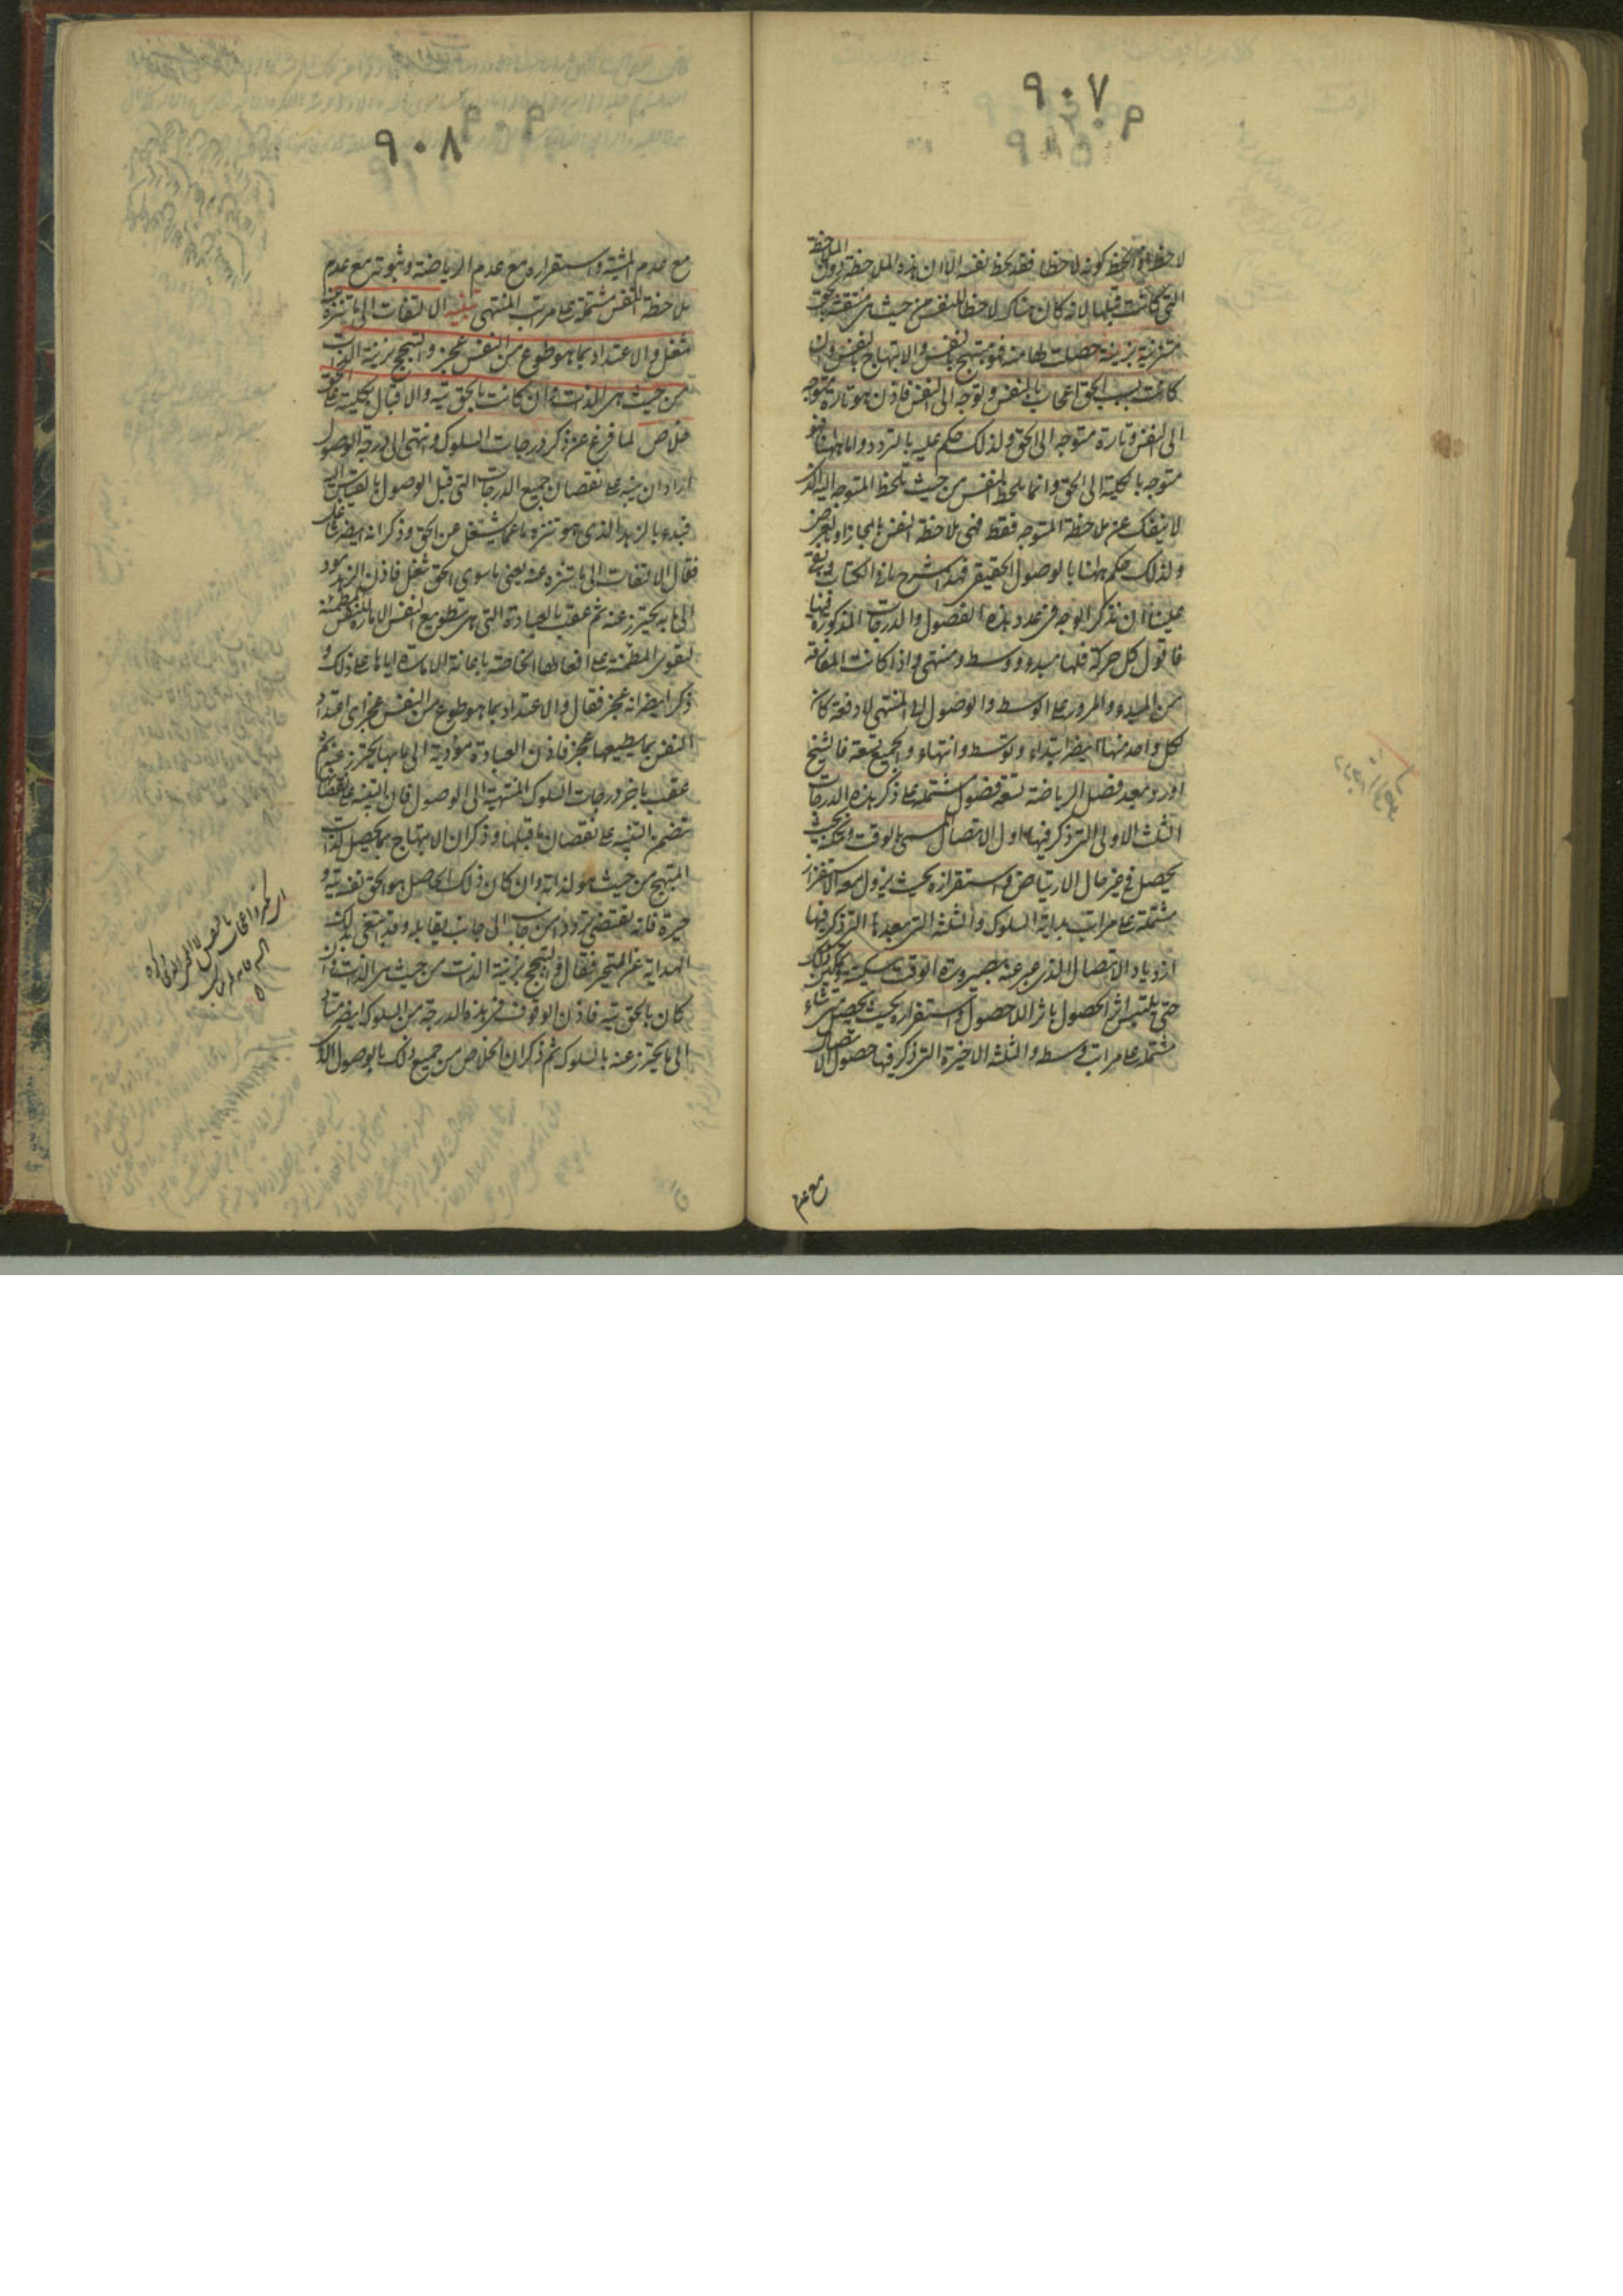 ٩٠٧
لاحظ اذا لحظ كونه لاحظا فقد لحظ نفسه الا ان هذه الملاحظة دون الملاحظة
التى كانت قبلها لانه كان هناك لاحظا للنفس من حيث هى منتقشة بالحق
متزينة بزينة حصلت لها منه فهو مبتهج بالنفس والابتهاج بالنفس وان
كانت بسبب الحق اعجاب بالنفس وتوجه الى النفس فاذن هو تارة متوجه
الى النفس وتارة متوجه الى الحق ولذلك حكم عليه بالتردد واما ههنا فهو
متوجه بالكلية الى الحق وانما يلحظ النفس من حيث يلحظ المتوجه اليه الذى
لا ينفك عن ملاحظة المتوجه فقط فهى ملاحظة النفس بالمجاز او بالعرض
ولذلك حكم ههنا بالوصول الحقيقى فهذا شرح ما فى الكتاب وبقى
علينا ان نذكر الوجه فى عدد هذه الفصول والدرجات المذكورة فيها
فاقول كل حركة فلها مبدء ووسط ومنتهى واذا كانت المفارقة
من المبدء والمرور على الوسط والوصول الى المنتهى لا دفعة كان
لكل واحد منها ايضا ابتداء وتوسط وانتهاء والجميع تسعة فالشيخ
اورد بعد فصل الرياضة تسعة فصول مشتملة على ذكر هذه الدرجات
الثلث الاولى التى ذكر فيها اول الاتصال المسمى بالوقت وتمكنه بحيث
يحصل فى غير حال الارتياض واستقراره بحيث يزول معه الاستفزاز
مشتملة على مراتب بداية السلوك والثلثة التى بعدها التى ذكر فيها
ازدياد الاتصال الذى عبر عنه بصيرورة الوقت سكينة وتمكن ذلك
حتى يلتبس اثر الحصول باثر اللاحصول واستقراره بحيث يحصل متى شاء
مشتملة على مراتب وسطه والثلثة الاخيرة التى ذكر فيها حصول الاتصال
مع عدم
٩٠٨
مع عدم المشية واستقراره مع عدم الرياضة وثبوته مع عدم
ملاحظة النفس مشتملة على مراتب المنتهى تنبيه الالتفات الى ما تنزه عنه
شغل والاعتداد بما هو طوع من النفس عجز والتبجح بزينة الذات
من حيث هى الذات وان كانت بالحق تيه والاقبال بالكلية على الحق
خلاص لما فرغ عن ذكر درجات السلوك وانتهى الى درجة الوصول
اراد ان ينبه على نقصان جميع الدرجات التى قبل الوصول بالقياس اليه
فبدء بالزهد الذى هو تنزه ما عما يشغل عن الحق وذكر انه ايضا شاغل
فقال الالتفات الى ما تنزه عنه يعنى ما سوى الحق شغل فاذن الزهد مود
الى ما به يحترز عنه ثم عقب بالعبادة التى هى تطويع النفس الامارة للنفس المطمئنة
لتقوى المطمئنة على افعالها الخاصة باعانة الامارة اياها على ذلك و
ذكر ايضا انه عجز فقال والاعتداد بما هو طوع من النفس عجز اى اعتداد
النفس بما يطيعها عجز فاذن العبادة مؤدية الى ما بها يحترز عنه ثم
عقب باخر درجات السلوك المنتهية الى الوصول فان التنبيه على نقصانها
يتضمن التنبيه على نقصان ما قبلها وذكر ان الابتهاج بما يحصل لذات
المبتهج من حيث هو لذاته وان كان ذلك الحاصل هو الحق نفسه تيه و
حيرة فانه يقتضى ترددا من جانب الى جانب يقابله وقد ابتغى بذلك
الهداية عن التحير فقال والتبجح بزينة الذات من حيث هى الذات وان
كان بالحق تيه فاذن الوقوف فى هذه الدرجة من السلوك ايضا متاد
الى ما يحترز عنه بالسلوك ثم ذكر ان الخلاص من جميع ذلك بالوصول الذى